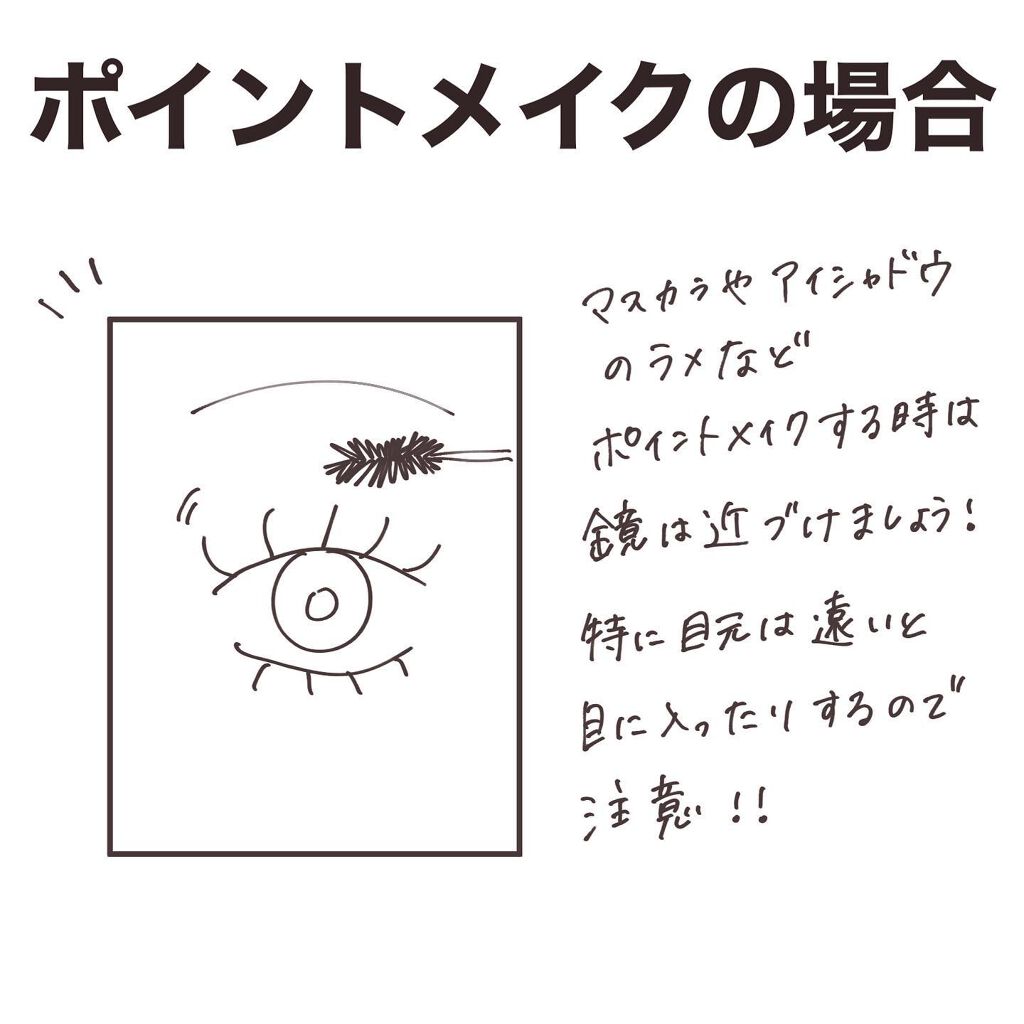 ポイントメイクの場合
マスカラや アイシャドウ
のラメなど
ポイントメイクする時は
鏡は近づけましょう!
特に目元は遠いと
目に入ったりするので
注意!!